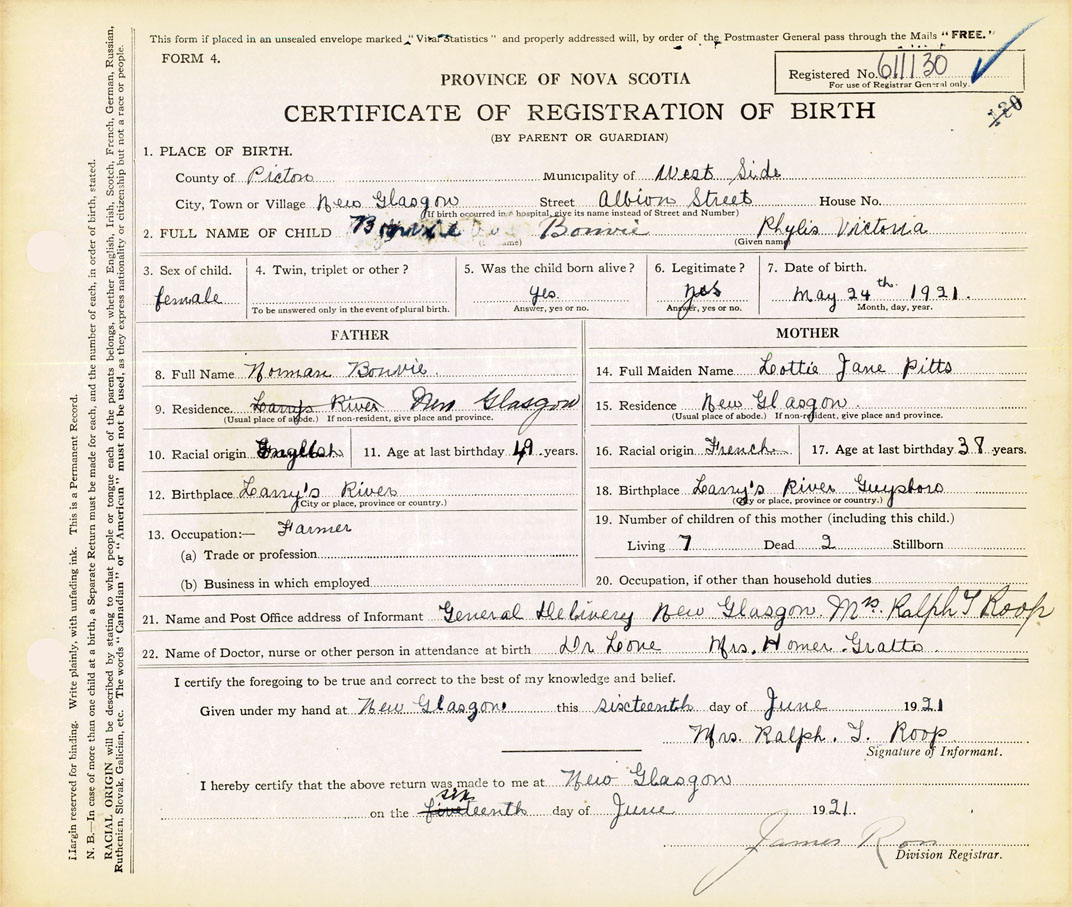 This form if placed in an unsealed envelope marked "Vital Statistics" and properly addressed will, by order of the Postmaster General pass through the Mails "FREE."
FORM 4.
PROVINCE OF NOVA SCOTIA
Registered No. 611130
For use of Registrar General only.
120
CERTIFICATE OF REGISTRATION OF BIRTH
(BY PARENT OR GUARDIAN)
1. PLACE OF BIRTH.
County of Picton Municipality of West Side
City, Town or Village New Glasgow Street Albion Street House No.
(If birth occurred in a hospital, give its name instead of Street and Number)
2. FULL NAME OF CHILD Bonvie Bonvie Phylis Victoria
(Given name)
3. Sex of child. 4. Twin, triplet or other? 5. Was the child born alive? 6. Legitimate? 7. Date of birth.
female yes yes May 24th 1921.
To be answered only in the event of plural birth. Answer, yes or no. Answer, yes or no. Month, day, year.
FATHER
8. Full Name Norman Bonvie
9. Residence. Larrys River New Glasgow
(Usual place of abode.) If non-resident, give place and province.
10. Racial origin English 11. Age at last birthday 49 years.
12. Birthplace Larry's River
(City or place, province or country.)
13. Occupation:— Farmer
(a) Trade or profession
(b) Business in which employed
MOTHER
14. Full Maiden Name Lottie Jane Pitts
15. Residence New Glasgow
(Usual place of abode.) If non-resident, give place and province.
16. Racial origin French 17. Age at last birthday 38 years.
18. Birthplace Larry's River Guysboro
(City or place, province or country.)
19. Number of children of this mother (including this child.)
Living 7 Dead 2 Stillborn
20. Occupation, if other than household duties
21. Name and Post Office address of Informant General Delivery New Glasgow. Mrs. Ralph T Roop
22. Name of Doctor, nurse or other person in attendance at birth Dr Love Mrs. Homer Gratto
I certify the foregoing to be true and correct to the best of my knowledge and belief.
Given under my hand at New Glasgow this sixcteenth day of June 1921
Mrs. Ralph. T. Roop
Signature of Informant.
I hereby certify that the above return was made to me at New Glasgow
six
on the fiveteenth day of June 1921.
James
Division Registrar.
Margin reserved for binding. Write plainly, with unfading ink. This is a Permanent Record.
N. B.—In case of more than one child at a birth, a Separate Return must be made for each, and the number of each, in order of birth, stated.
RACIAL ORIGIN will be described by stating to what people or tongue each of the parents belongs, whether English, Irish, Scotch, French, German, Russian,
Ruthenian, Slovak, Galician, etc. The words "Canadian" or "American" must not be used, as they express nationality or citizenship but not a race or people.